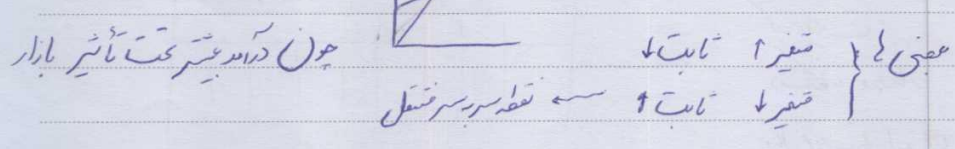 بعضی ها متغیر ↑ ثابت ↓ چون درآمد بیشتر تحت تأثیر بازار
متغیر ↓ ثابت ↑ ← نقطه سربسر منتقل